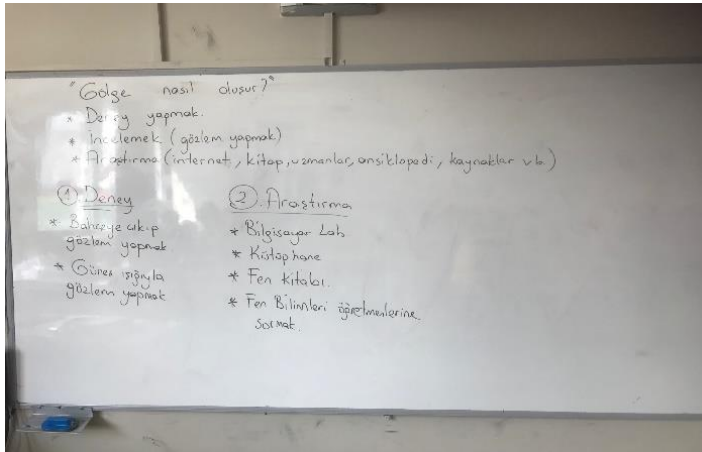 "Gölge nasıl oluşur?"
* Deney yapmak.
* İncelemek (gözlem yapmak)
* Araştırma (internet, kitap, uzmanlar, ansiklopedi, kaynaklar vb)
1. Deney
* Bahçeye çıkıp
gözlem yapmak
* Güneş ışığıyla
gözlem yapmak
2. Araştırma
* Bilgisayar Lab
* Kütüphane
* Fen kitabı.
* Fen Bilimleri öğretmenlerine
sormak.